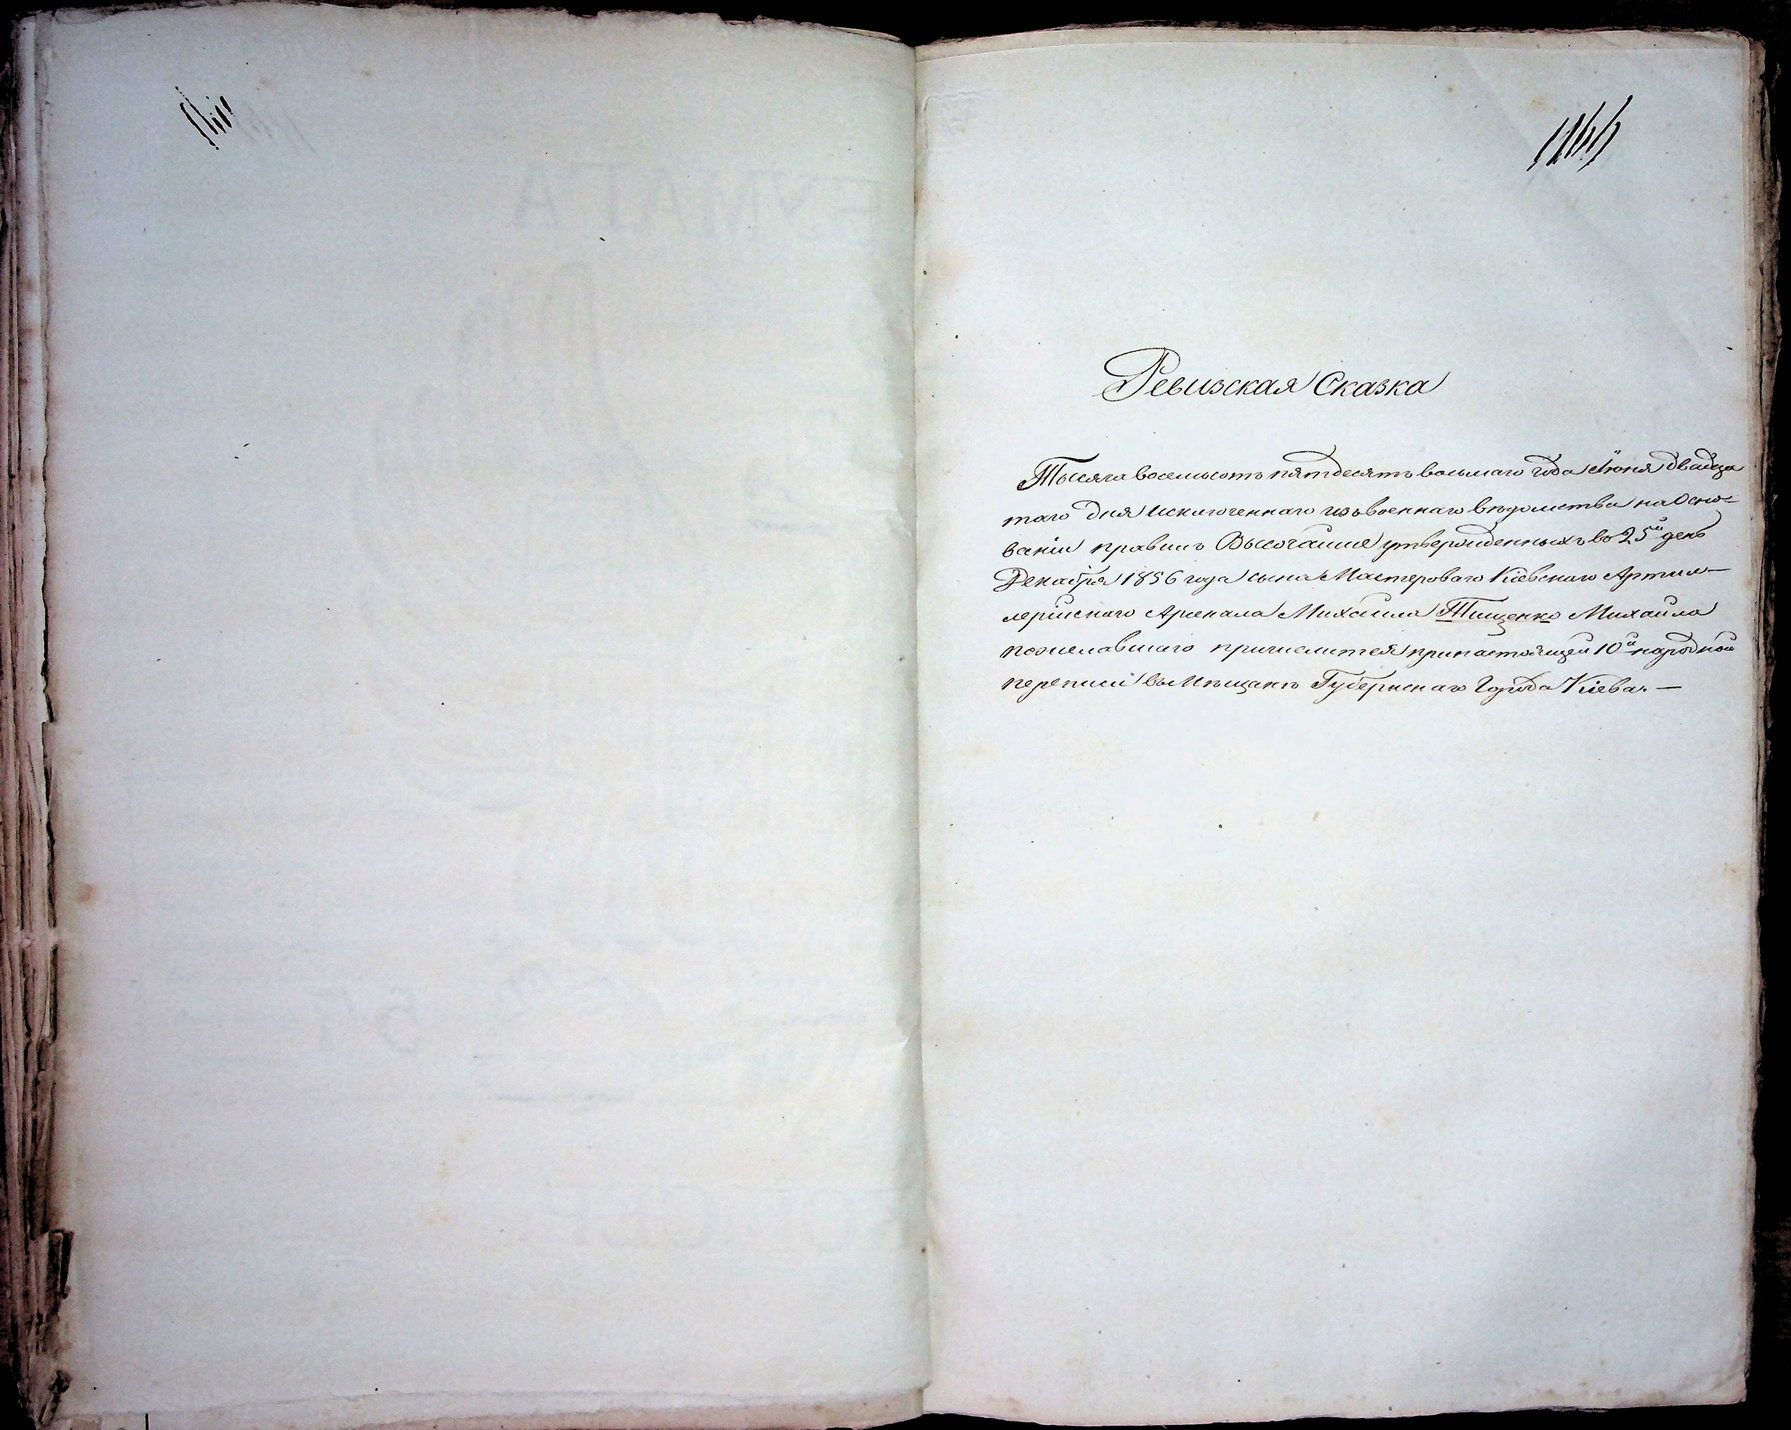 Ревизская Сказка
Тысяча восемьсотъ пятдесятъ восьмаго года Июня двадца
таго дня исключеннаго изъ военнаго вѣдомства на Осно-
ваніи правилъ Высочайше утвержденныхъ въ 25й день
Декабря 1856 года сына Мастероваго Кіевскаго Артил-
лерійскаго Арсенала Михаила Тищенко Михаила
пожелавшаго причислится при настоящей 10й народной
переписи въ Мѣщане Губернскаго Города Кіева. —